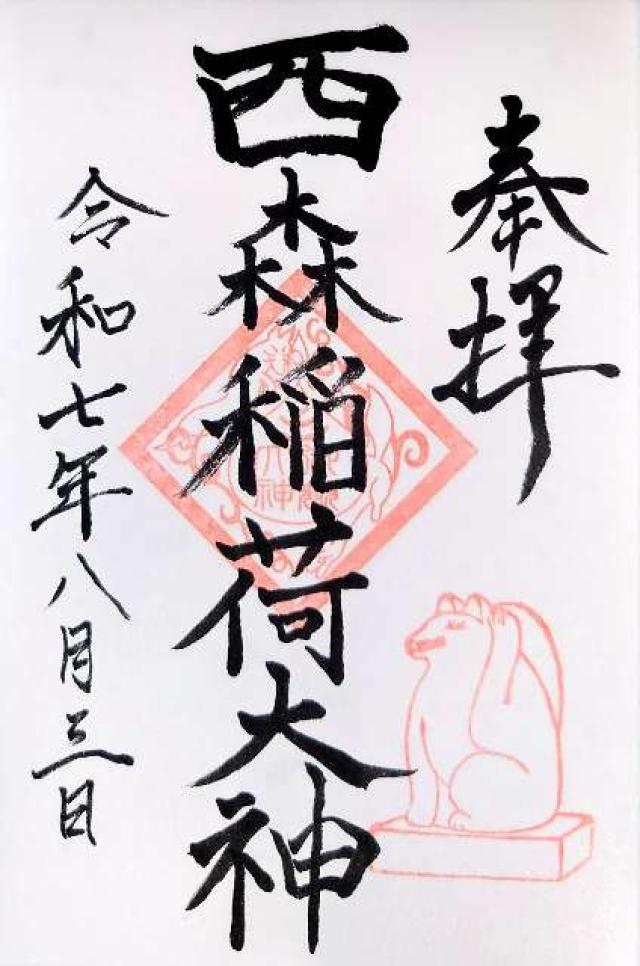 奉拝
西森稲荷大神
令和七年八月三日